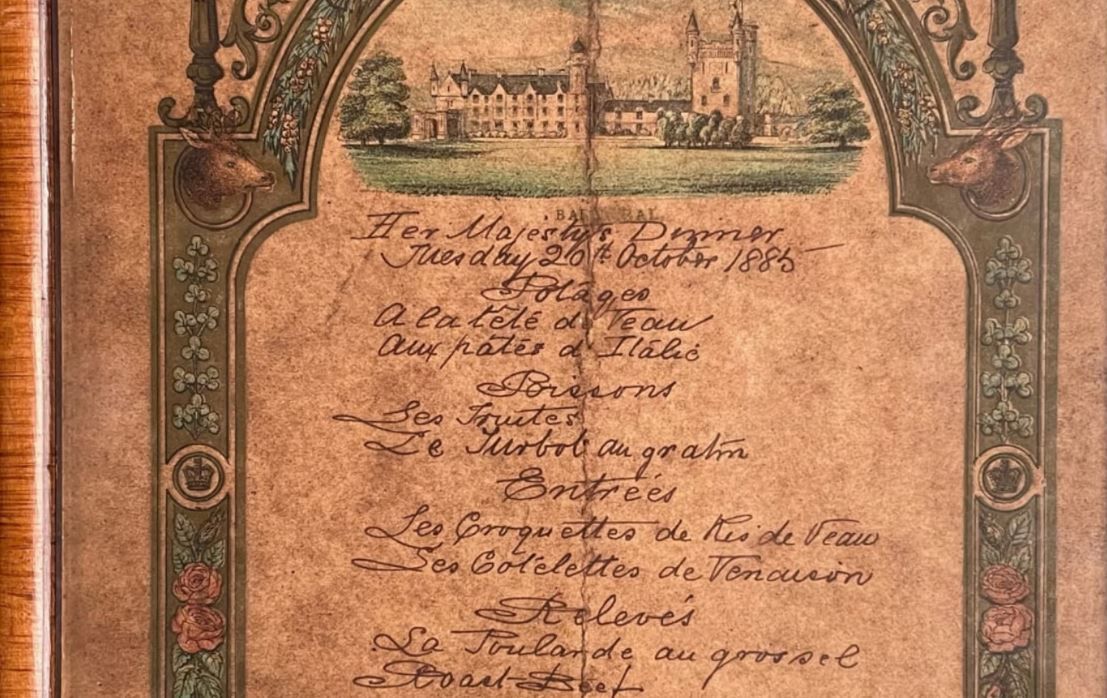 BALMORAL
Her Majesty's Dinner
Tuesday 20th October 1885
Potages
A la tête de Veau
Aux pâtes d'Italie
Poissons
Les Truites
Le Turbot au gratin
Entrées
Les Croquettes de Ris de Veau
Les Côtelettes de Venaison
Relevés
La Poularde au gros sel
Roast Beef